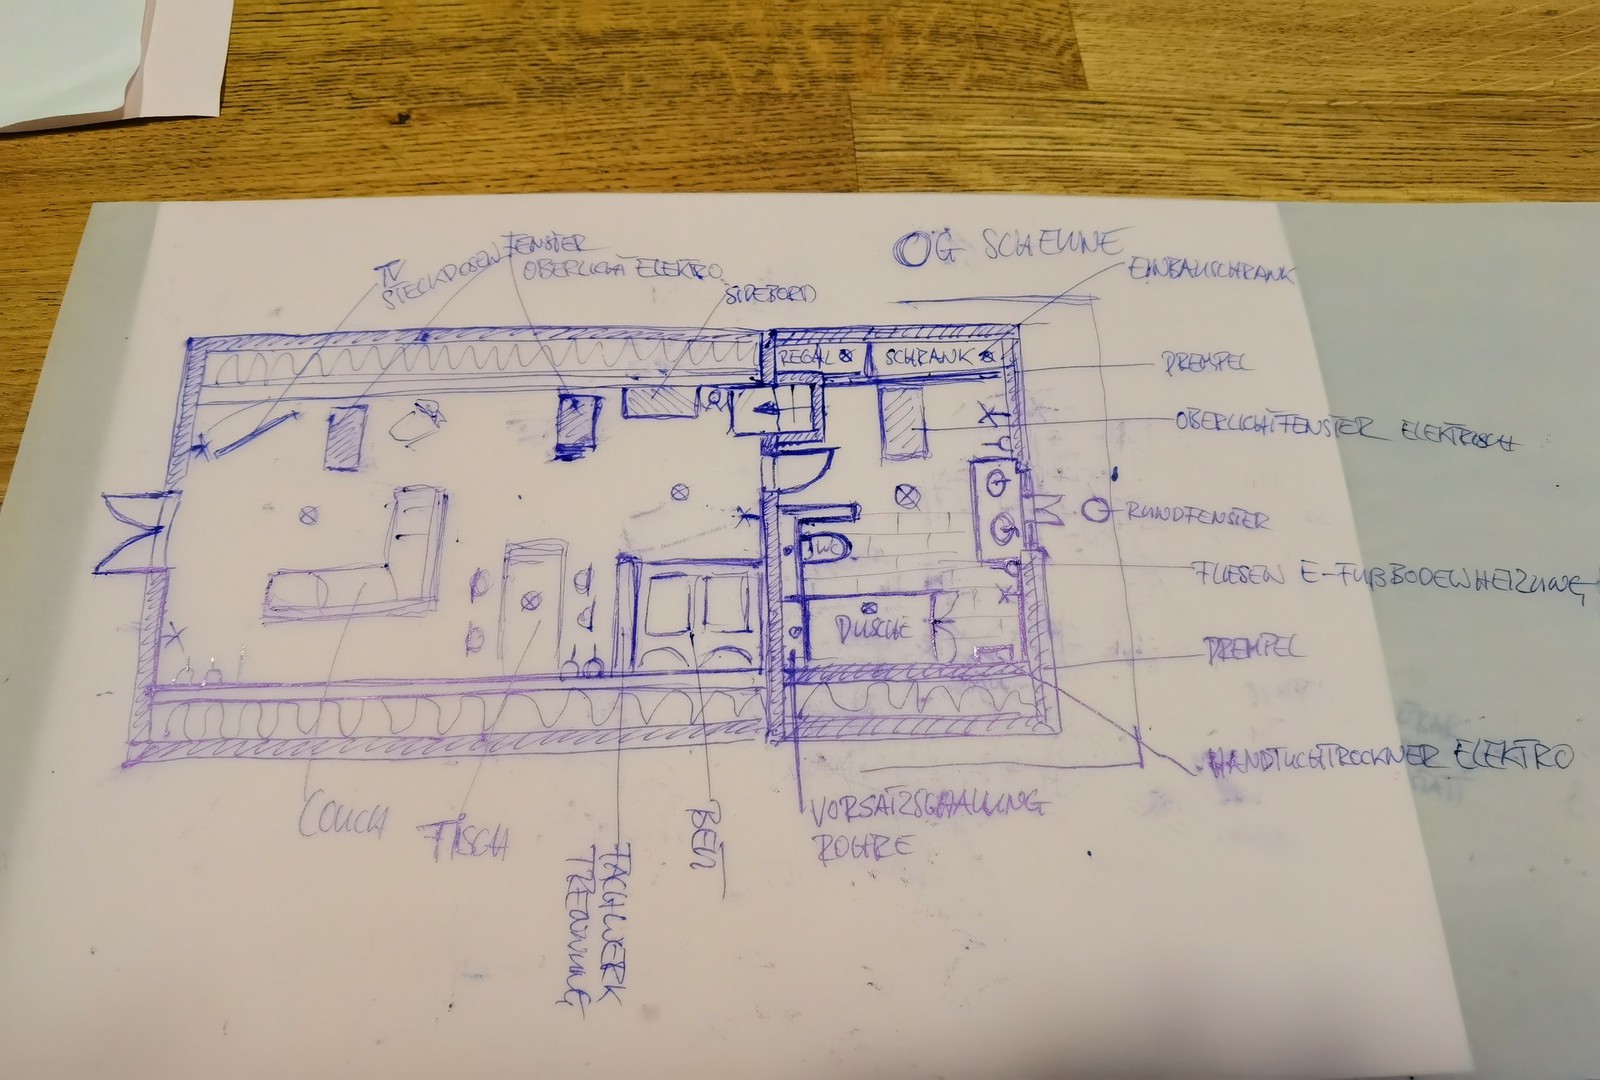 OG SCHEUNE
TV
STECKDOSEN
FENSTER
OBERLICHT ELEKTRO
SIDEBORD
EINBAUSCHRANK
REGAL
SCHRANK
DREMPEL
OBERLICHTFENSTER ELEKTRISCH
RUNDFENSTER
WC
FLIESEN E-FUẞBODENHEIZUNG
DUSCHE
DREMPEL
HANDTUCHTROCKNER ELEKTRO
COUCH
TISCH
FACHWERK
TRENNUNG
BETT
VORSATZSCHALUNG
ROHRE